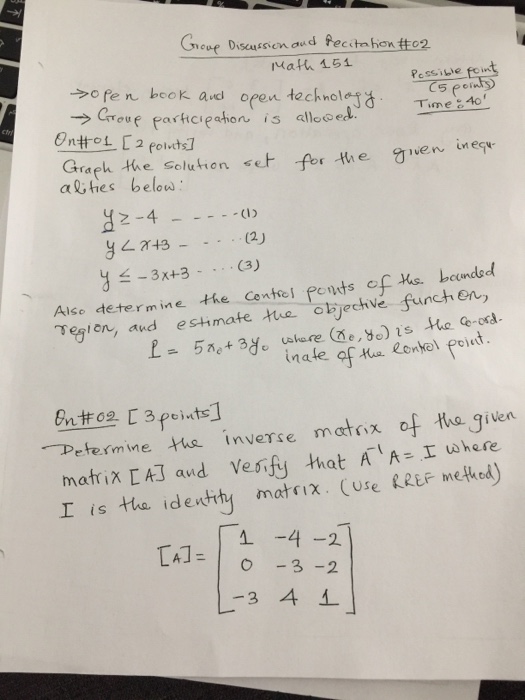 Group Discussion and Recitation #02
Math 151
Possible point
(5 points)
Time: 40'
→ open book and open technology.
→ Group participation is allowed.
Qn#01 [2 points]
Graph the solution set for the given inequ-
alities below:
y ≥ -4 - - - - - - (1)
y < x+3 - - - - - (2)
y ≤ -3x+3 - - - - - (3)
Also determine the control points of the bounded
region, and estimate the objective function,
P = 5x₀ + 3y₀ where (x₀, y₀) is the co-ord-
inate of the control point.
Qn#02 [3 points]
Determine the inverse matrix of the given
matrix [A] and verify that A⁻¹A = I where
I is the identity matrix. (use RREF method)
[A] = [1 -4 -2
0 -3 -2
-3 4 1]